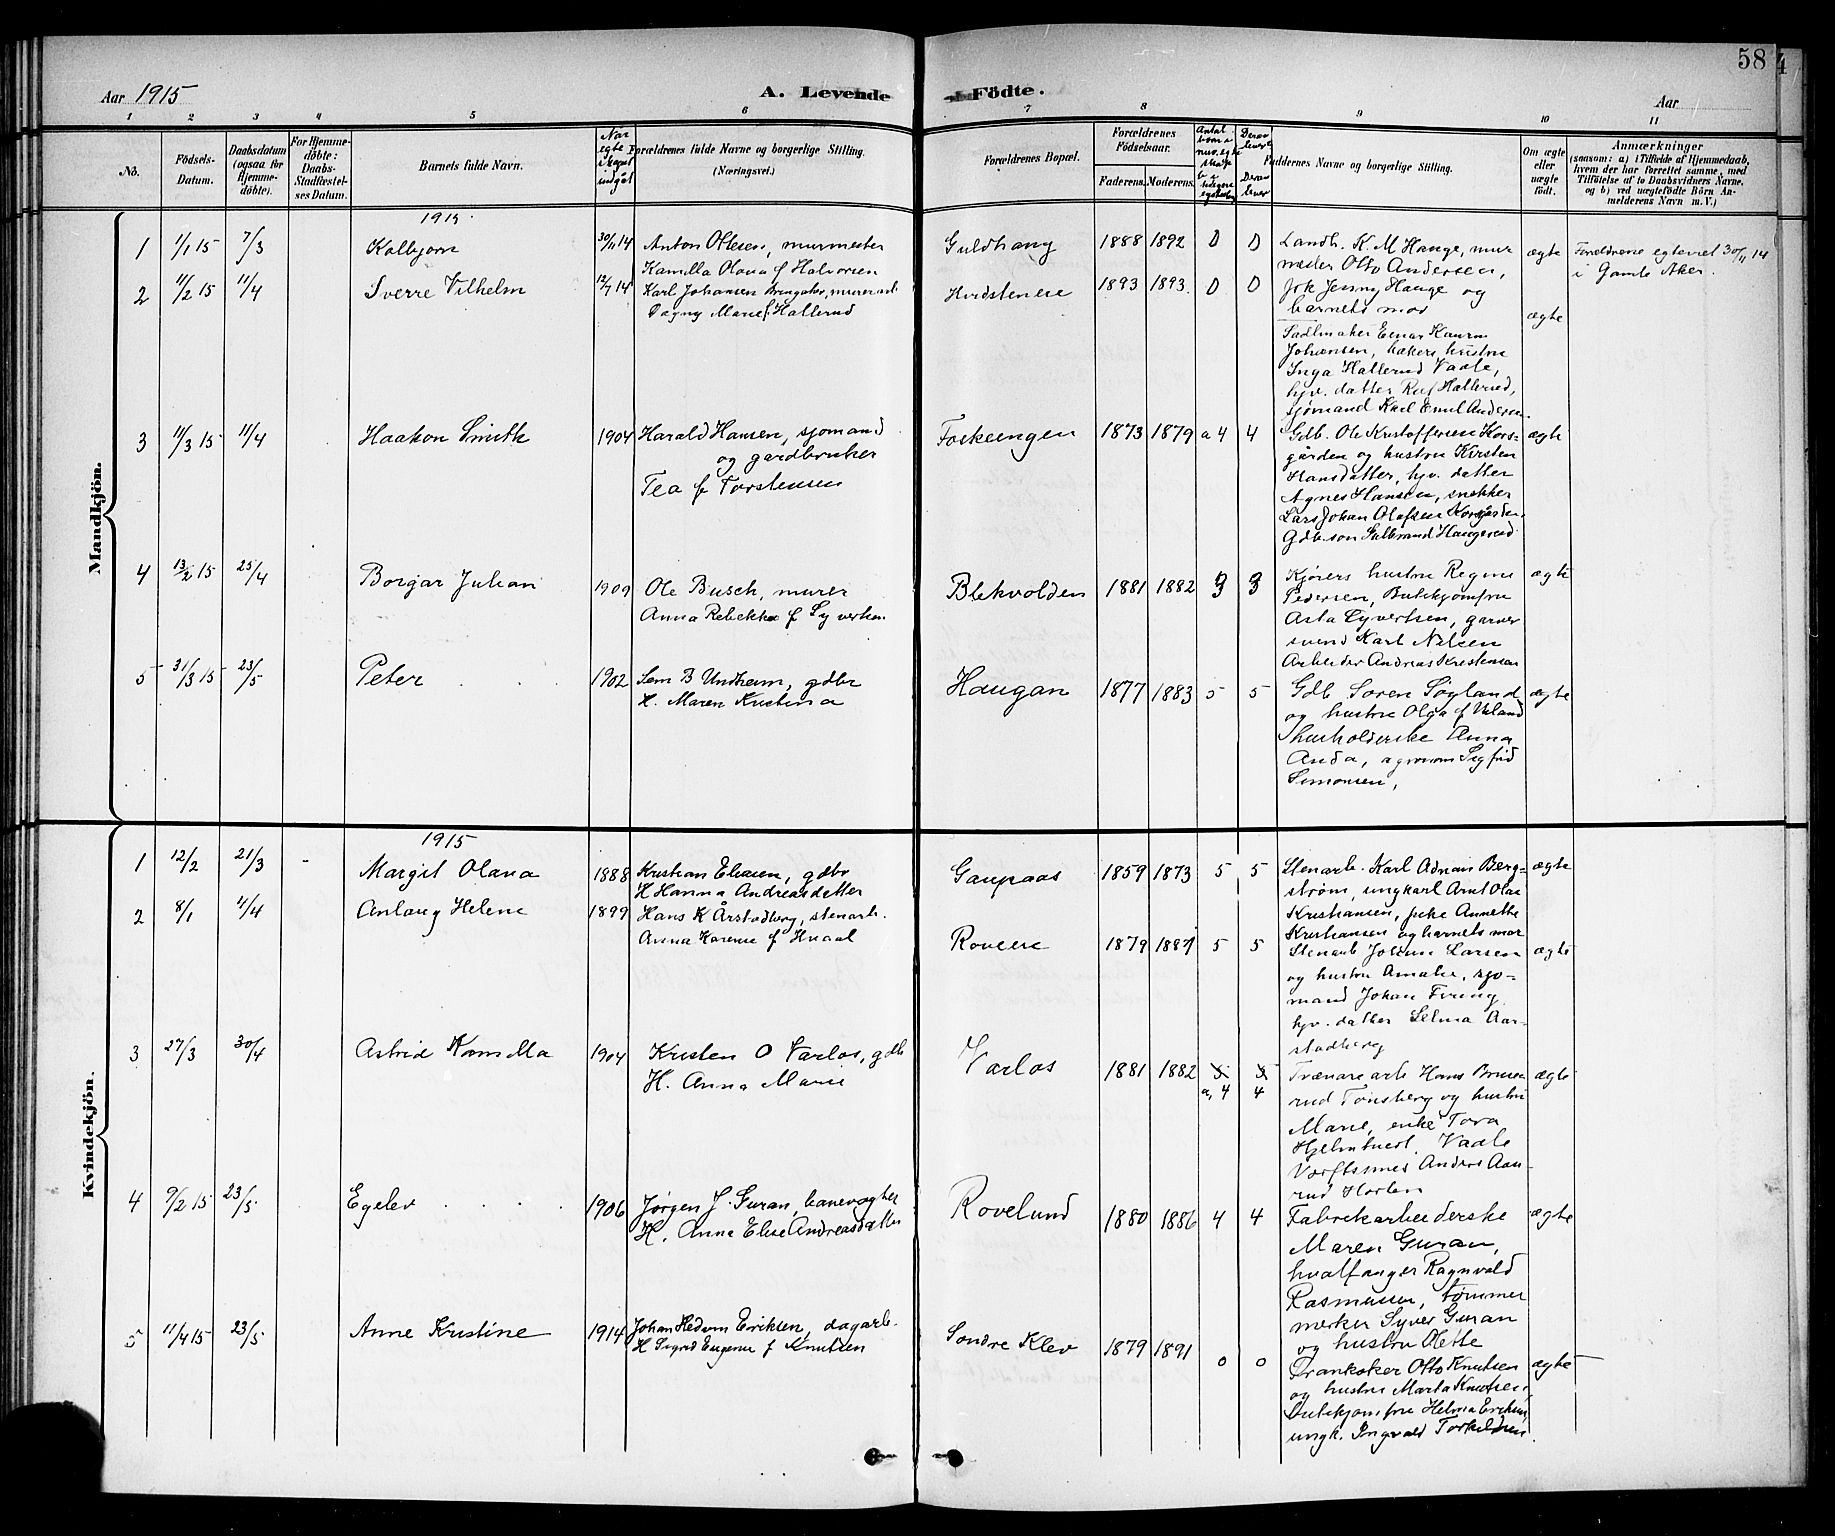 58
Aar 1915
A. Levende
Födte.
Aar
1 2 3 4 5 6 7 8 9 10 11
No.
Födsels-
Datum.
Daabsdatum
(ogsaa for
Hjemme-
döbte).
For Hjemme-
döbte:
Daabs-
Stadfæstel-
ses Datum.
Barnets fulde Navn.
Naar
egte
skapet
indgåt
Forældrenes fulde Navne og borgerlige Stilling.
(Næringsvei.)
Forældrenes Bopæl.
Forældrenes
Födselsaar.
Faderens. Moderens.
Faddernes Navne og borgerlige Stilling.
Om ægte
eller
uægte
födt.
Anmærkninger
(saasom: a) i Tilfælde af Hjemmedaab,
hvem der har forrettet samme, med
Tilföielse af to Daabsvidners Navne,
og b) ved uægtefödte Börn An-
melderens Navn m. V.)
Mandkjön.
1915
1 1/1 15 7/3 Kolbjørn 30/11 14 Anton Olsen, murmester
Kamilla Olana f Halvorsen
Guldhaug 1888 1892 0 0
Landh. K. M Hauge, mur
mester Otto Andersen,
frk Jenny Hauge og
barnets mor
ægte
Foreldrene egteviet 30/11 14
i Gamle Aker.
2 11/2 15 11/4 Sverre Vilhelm 12/7 14 Karl Johansen Bringaker, murerarb.
Dagny Marie f Hallerud
Hvidsteneie 1893 1893 0 0
Sadlmaker Einar Kaurin
Johansen, bakers hustru
Inga Hallerud Vaale,
hjv. datter Rut Hallerud,
sjømand Karl Emil Andersen
ægte
3 11/3 15 11/4 Haakon Smith 1904 Harald Hansen, sjømand
og gardbruker
Tea f Torstensen
Foskeengen 1873 1879 a 4 4
Gdb. Ole Kristoffersen Kors-
gården og hustru Kirsten
Hansdatter, hjv. datter
Agnes Hansen, snekker
Lars Johan Olafsen Korsgården
Gdb. søn Gulbrand Haugerud
ægte
4 13/2 15 25/4 Borgar Julian 1909 Ole Busch, murer
Anna Rebekka f Syvertsen
Blekvolden 1881 1882 3 3
Kjørers hustru Regine
Pedersen, Butikjomfru
Asta Syvertsen, garver
svend Karl Nilsen
Arbeider Andreas Kristensen
ægte
5 31/3 15 23/5 Peter 1902 Sem B Undheim, gdbr
H. Maren Kristina
Haugan 1877 1883 5 5
Gdb. Søren Søyland
og hustru Olga f Ueland
husholderske Anna
Anda, agronom Sigfrid
Simonsen,
ægte
Kvindekjön.
1915
1 12/2 21/3 Margit Olava 1888 Kristian Eliasen, gdbr
H Hanna Andreasdatter
Gaupaas 1859 1873 5 5
Stenarb. Karl Adrian Berg-
strøm, ungkarl Arnt Olav
Kristiansen, pike Annette
Kristiansen og barnets mor
ægte
2 8/1 11/4 Anlaug Helene 1899 Hans K Årstadberg, stenarb.
Anna Karense f Hvaal
Roveeie 1879 1881 5 5
Stenarb Johann Larsen
og hustru Amalie, sjø-
mand Johan Firing
hjv. datter Selma Aar-
stadberg
ægte
3 27/3 30/4 Astrid Kamilla 1904 Kristen O Varlos, gdb
H. Anna Marie
Varlos 1881 1882 a, 4 4
Trævarearb Hans Bruse
rud Tønsberg og hustru
Marie, enke Tora
Hjelmtvedt, Vaale
Værftsmed Anders Aan-
rud Horten
ægte
4 9/2 15 23/5 Egelev 1906 Jørgen J. Guran, banevogter
H. Anna Elise Andreasdatter
Rovelund 1880 1886 4 4
Fabrikarbeiderske
Maren Guran,
hvalfanger Ragnvald
Rasmussen, tømmer
merker Syver Guran
og hustru Olette
ægte
5 11/4 15 23/5 Anne Kristine 1914 Johan Hedvin Eriksen, dagarb.
H Sigrid Eugenie f Knutsen
Søndre Klev 1879 1891 0 0
Trankoker Otto Knutsen
og hustru Marta Knutsen,
Butikjomfru Helma Eriksen,
ungk. Ingvald Torkildsen.
ægte